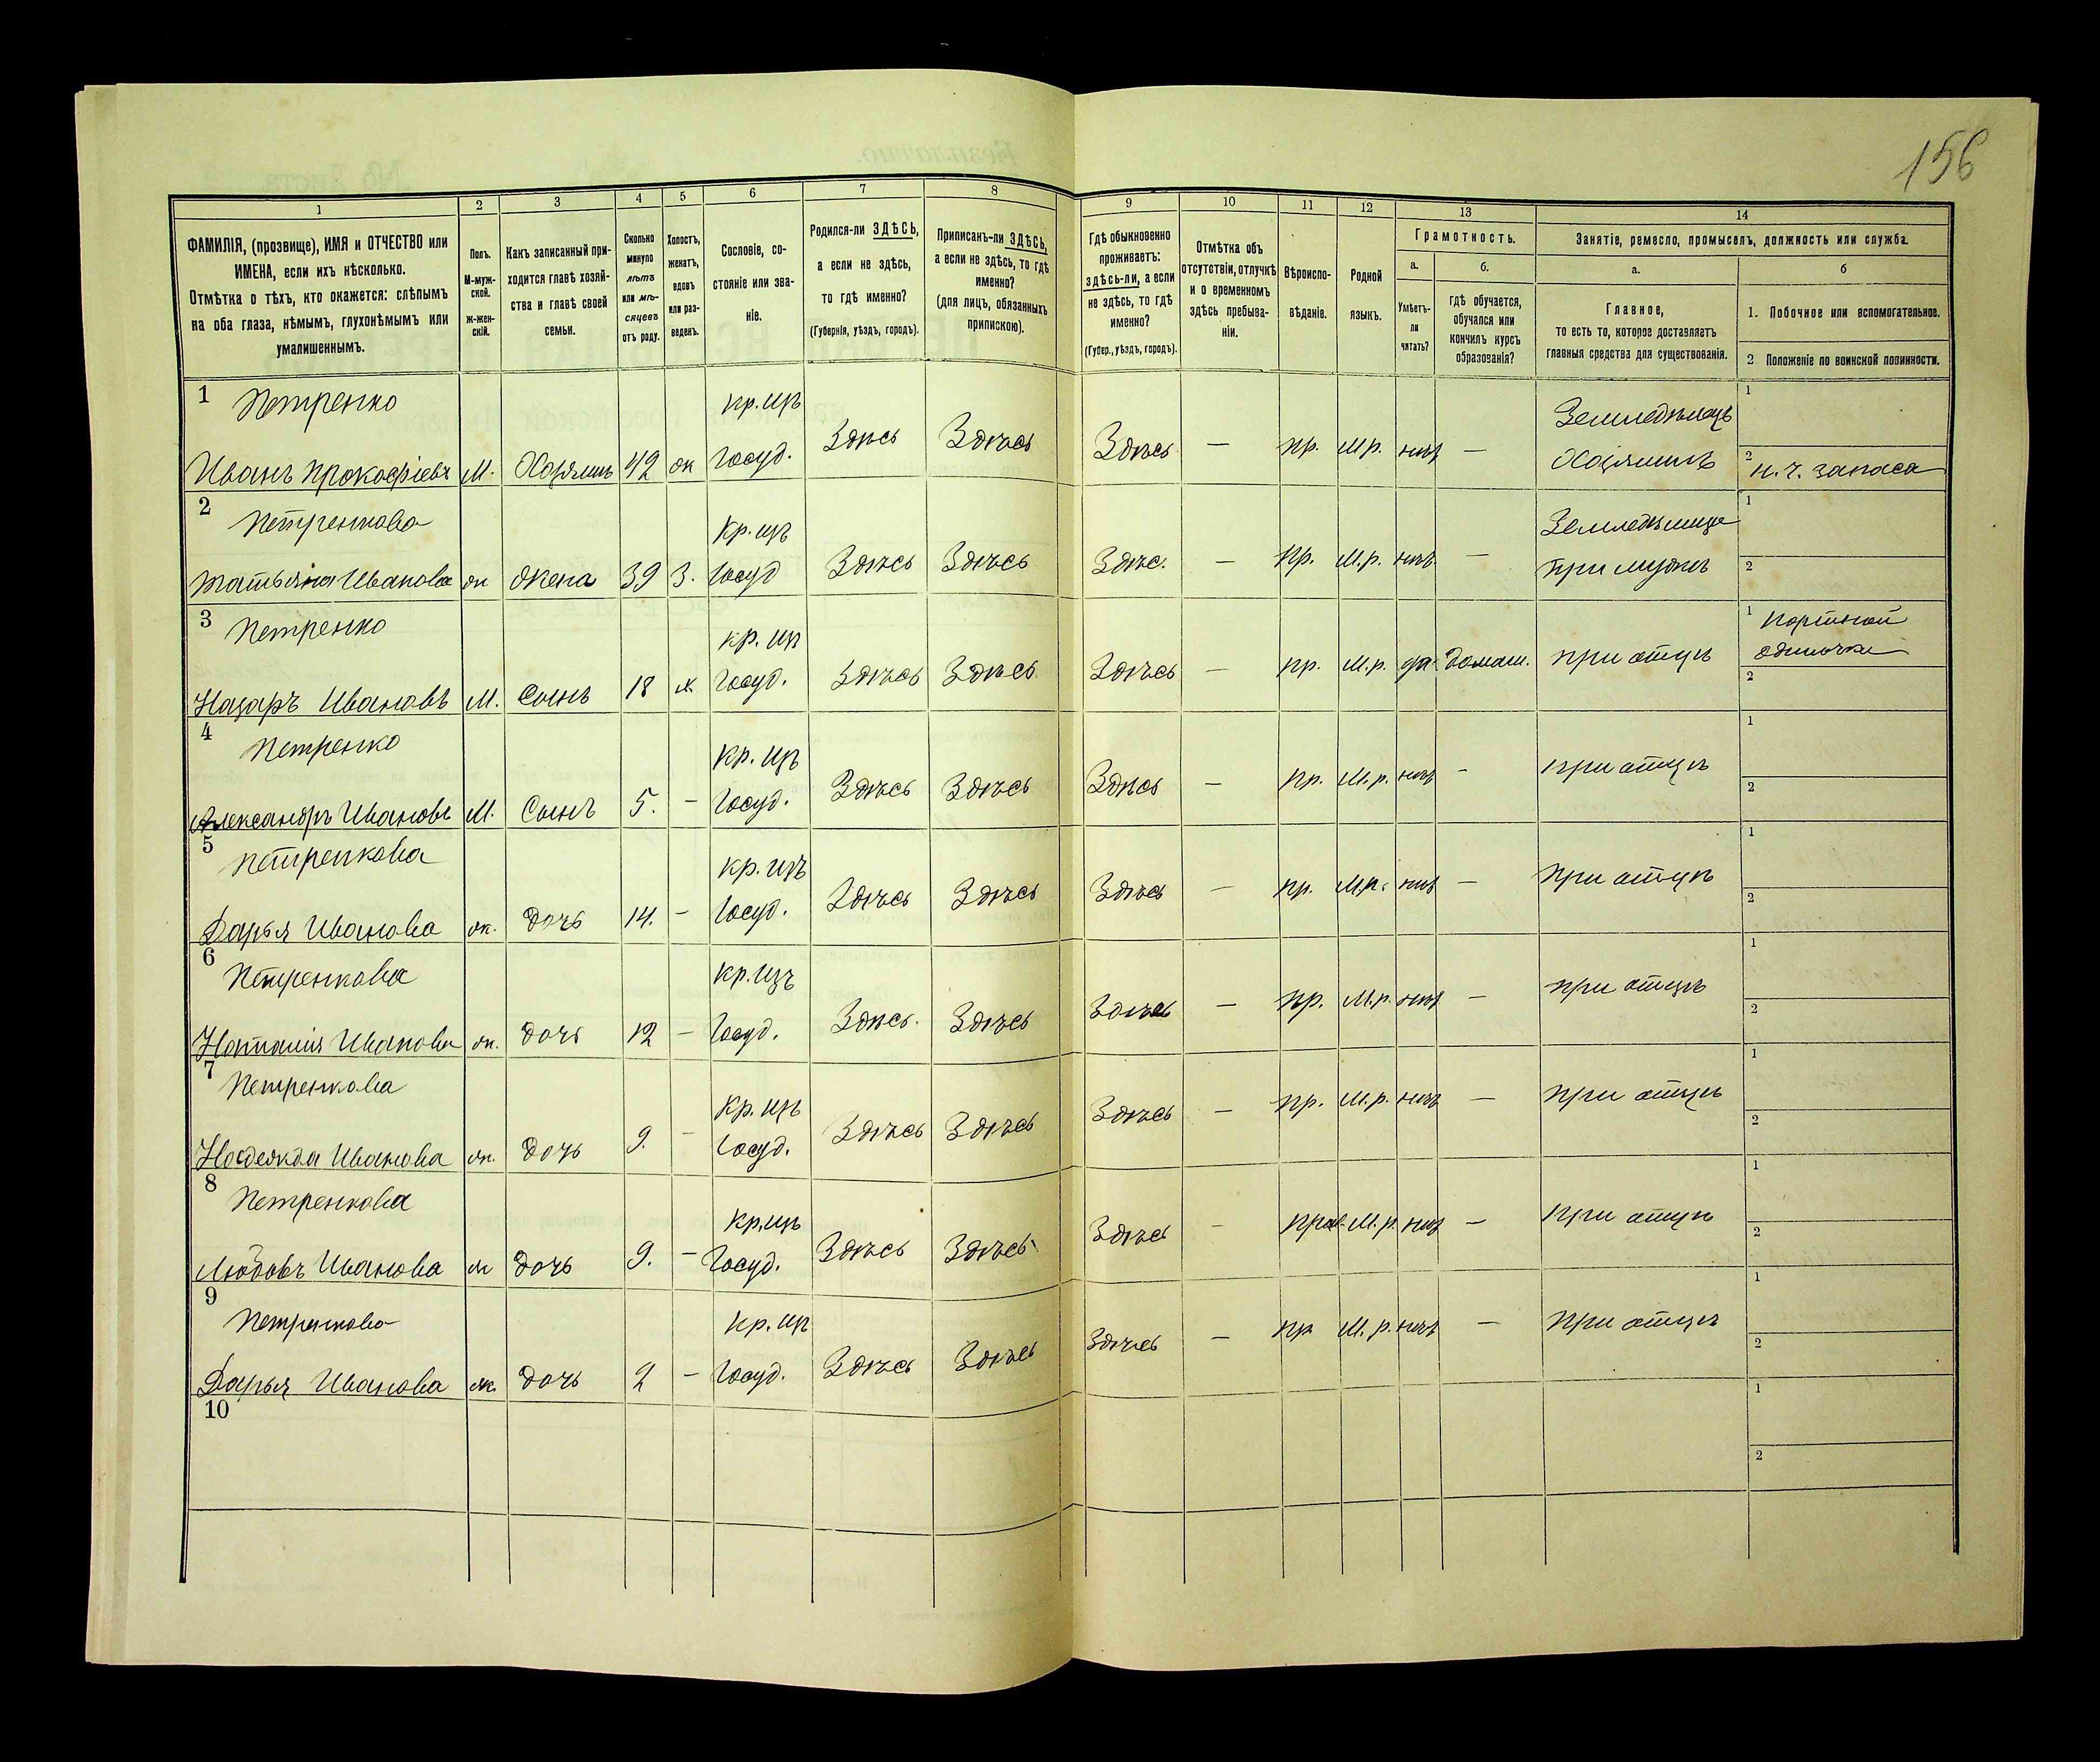 156
1 2 3 4 5 6 7 8 9 10 11 12 13 14
ФАМИЛІЯ, (прозвище), ИМЯ и ОТЧЕСТВО или
ИМЕНА, если ихъ нѣсколько.
Отмѣтка о тѣхъ, кто окажется: слѣпымъ
на оба глаза, нѣмымъ, глухонѣмымъ или
умалишеннымъ.
Полъ.
М-муж-
ской.
ж-жен-
скій.
Какъ записанный при-
ходится главѣ хозяй-
ства и главѣ своей
семьи.
Сколько
минуло
лѣтъ
или мѣ-
сяцевъ
отъ роду.
Холостъ,
женатъ,
вдовъ
или раз-
веденъ.
Сословіе, со-
стояніе или зва-
ніе.
Родился-ли ЗДѢСЬ,
а если не здѣсь,
то гдѣ именно?
(Губернія, уѣздъ, городъ).
Приписанъ-ли ЗДѢСЬ,
а если не здѣсь, то гдѣ
именно?
(для лицъ, обязанныхъ
припискою).
Гдѣ обыкновенно
проживаетъ:
здѣсь-ли, а если
не здѣсь, то гдѣ
именно?
(Губер., уѣздъ, городъ).
Отмѣтка объ
отсутствіи, отлучкѣ
и о временномъ
здѣсь пребыва-
ніи.
Вѣроиспо-
вѣданіе.
Родной
языкъ.
Грамотность.
а.
Умѣетъ-
ли
читать?
б.
гдѣ обучается,
обучался или
кончилъ курсъ
образованія?
Занятіе, ремесло, промыселъ, должность или служба.
а.
Главное,
то есть то, которое доставляетъ
главныя средства для существованія.
б
1. Побочное или вспомогательное.
2 Положеніе по воинской повинности.
1 Петренко кр. изъ Земледѣлецъ 1
Иванъ Прокофіевъ М. Хозяинъ 42 ж Госуд. Здѣсь Здѣсь Здѣсь — пр. М р. нѣт — Хозяинъ 2 н. ч. запаса
2 Петренкова кр. изъ Земледѣлица 1
Татьяна Иванова ж жена 39 З. Госуд Здѣсь Здѣсь Здѣс. — пр. М. р. нѣтъ — При мужѣ 2
3 Петренко кр. из 1 Портной
одиночка
Назаръ Ивановъ М. Сынъ 18 х Госуд. Здѣсь Здѣсь Здѣсь — пр. М. р. да. домаш. при отцѣ 2
4 Петренко кр. изъ 1
Александръ Ивановъ М. Сынъ 5. — Госуд. Здѣсь Здѣсь Здѣсь — пр. М. р. нѣт — при отцѣ 2
5 Петренкова кр. изъ 1
Дарья Иванова ж. дочь 14. — Госуд. Здѣсь Здѣсь Здѣсь — пр. М. р. нѣт — при отцѣ 2
6 Петренкова кр. изъ 1
Наталія Иванова ж. дочь 12 — Госуд. Здѣсь. Здѣсь Здѣсь — пр. М. р. нѣт — при отцѣ 2
7 Петренкова кр. изъ 1
Надежда Иванова ж. дочь 9. — Госуд. Здѣсь Здѣсь Здѣсь — пр. М. р. нѣтъ — при отцѣ 2
8 Петренкова кр. изъ 1
Любовь Иванова ж дочь 9. — Госуд. Здѣсь Здѣсь Здѣсь — прав. М. р. нѣт — при отцѣ 2
9 Петренкова кр. из 1
Дарья Иванова ж. дочь 2 — Госуд. Здѣсь Здѣсь Здѣсь — пр М. р. нѣтъ — при отцѣ 2
10 1
2